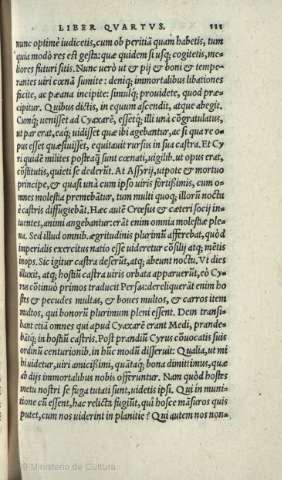 LIBER QVARTVS. 111
nunc optimè iudicetis, cum ob peritiã quam habetis, tum
quia modò res est gesta: quæ quidem si usq; cogitetis, me-
liores futuri sitis. Nunc uerò ut & pij & boni & tempe-
rantes uiri cœnã sumite: deniq; immortalibus libationes
ficite, ac pæana incipite: simulq; prouidete, quod præ-
cipitur. Quibus dictis, in equum ascendit, atque abegit.
Cumq; uenisset ad Cyaxarẽ, essetq; illi unà cõgratulatus,
ut par erat, eaq; uidisset quæ ibi agebantur, ac si qua re o-
pus esset quæsiuisset, equitauit rursus in sua castra. Et Cy
ri quidẽ milites posteaq̃ sunt cœnati, uigilib. ut opus erat,
cõstitutis, quieti se dederũt. At Assyrij, utpote & mortuo
principe, & quasi unà cum ipso uiris fortißimis, cum o-
mnes molestia premebatur, tum multi quoq; illorũ noctu
è castris diffugiebãt, Hæc autẽ Crœsus & cæteri socij in-
tuentes, animi angebantur: erãt enim omnia molestiæ ple
na. Sed illud omnib. ægritudinis plurimũ afferebat, quòd
imperialis exercitus natio esse uideretur cõsilij atq; mẽtis
inops. Sic igitur castra deserũt, atq; abeunt noctu, Vt dies
illuxit, atq; hostiũ castra uiris orbata apparuerũt, eò Cy-
rus cõtinuò primos traducit Persas: dereliquerãt enim ho
stes & pecudes multas, & boues multos, & carros item
multos, qui bonorũ plurimum pleni essent. Dein transi-
bant etiã omnes qui apud Cyaxarẽ erant Medi, prande-
bãtq; in hostiũ castris. Post prandiũ Cyrus cõuocatis suis
ordinũ centurionib. in hũc modũ disseruit: Qualia, ut mi
hi uidetur, uiri amicißimi, quãtaq; bona dimittimus, quæ
ab dijs immortalibus nobis offeruntur. Nam quòd hostes
metu nostri se fuga tutati sunt, uidetis ipsi. Qui in muni-
tione cũ essent, hac relicta fugiũt, qui hosce mãsuros quis
putet, cum nos uiderint in planitie? Qui autem nos non-
© Ministerio de Cultura